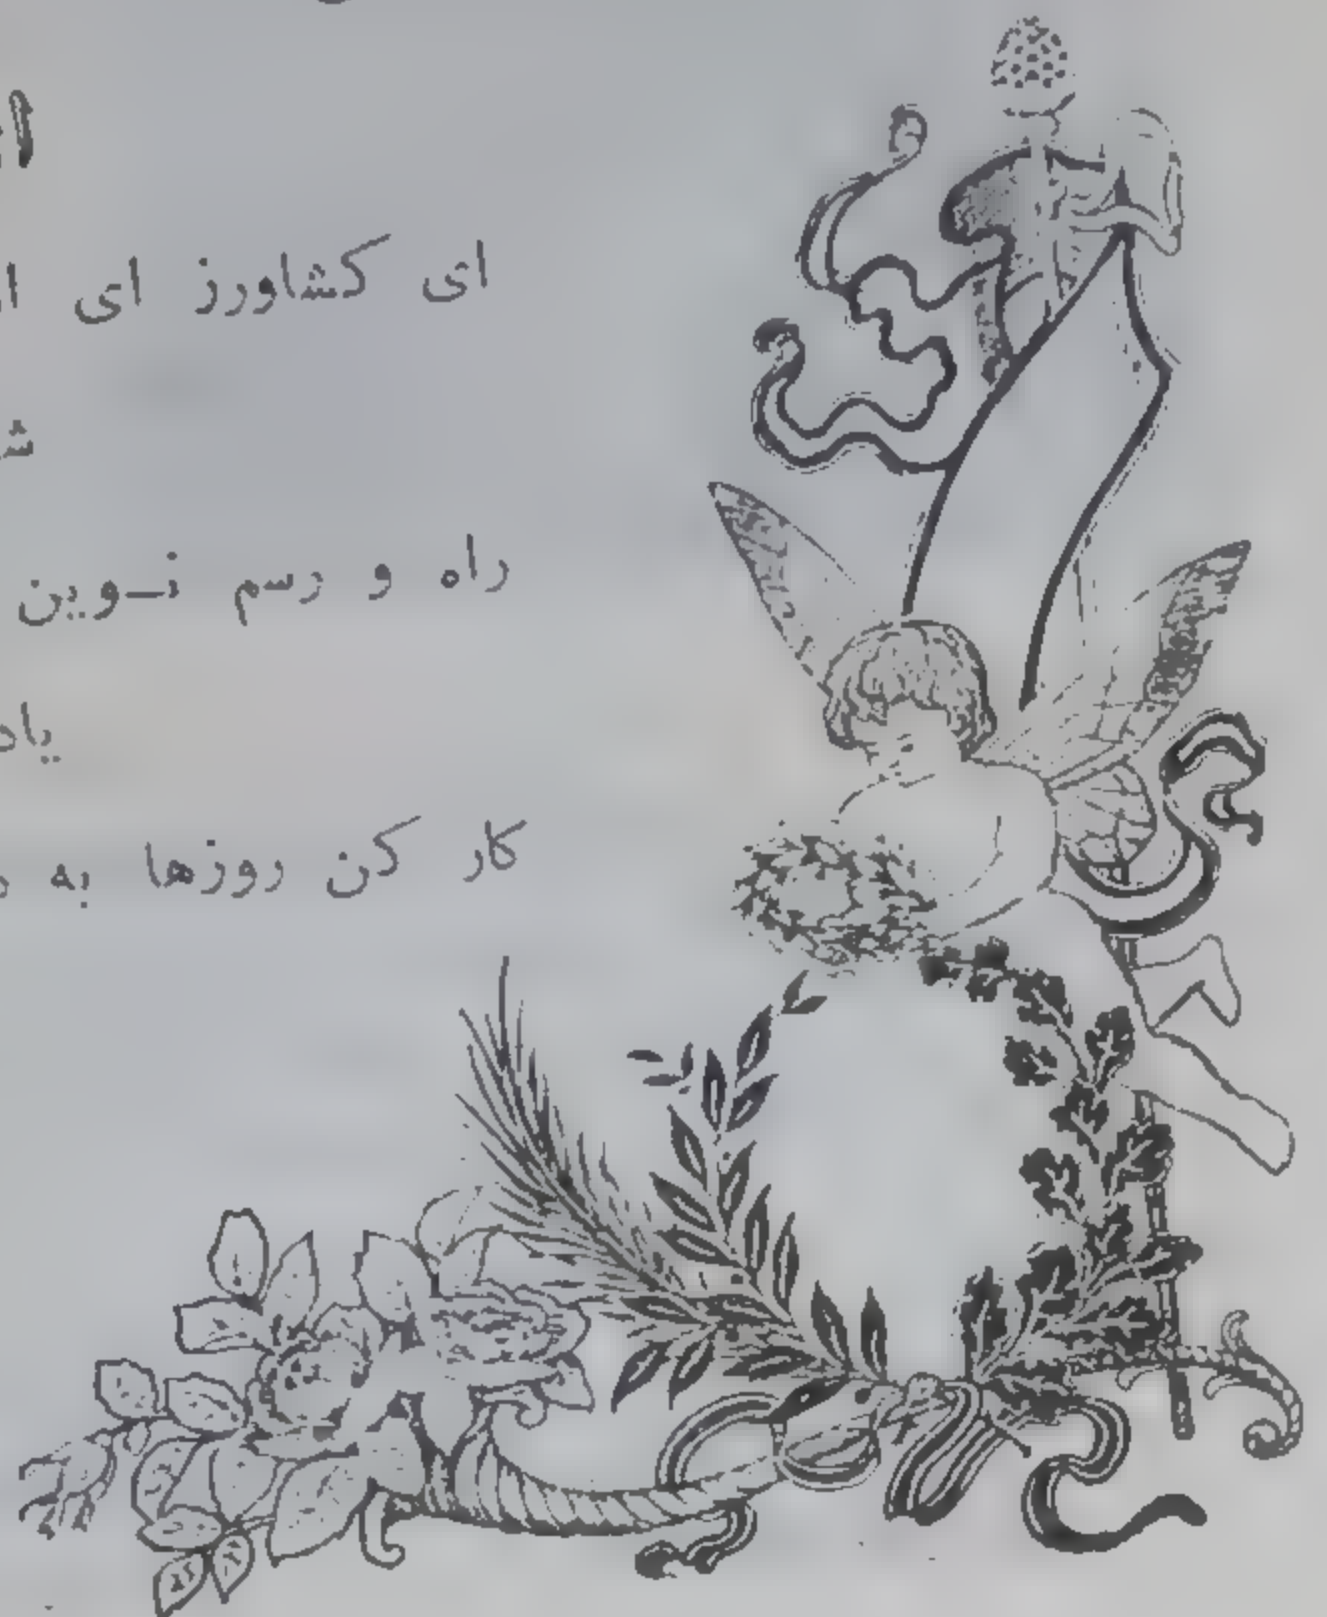 ای کشاورز ای
راه و رسم نـوین
یاد
کار کن روزها به